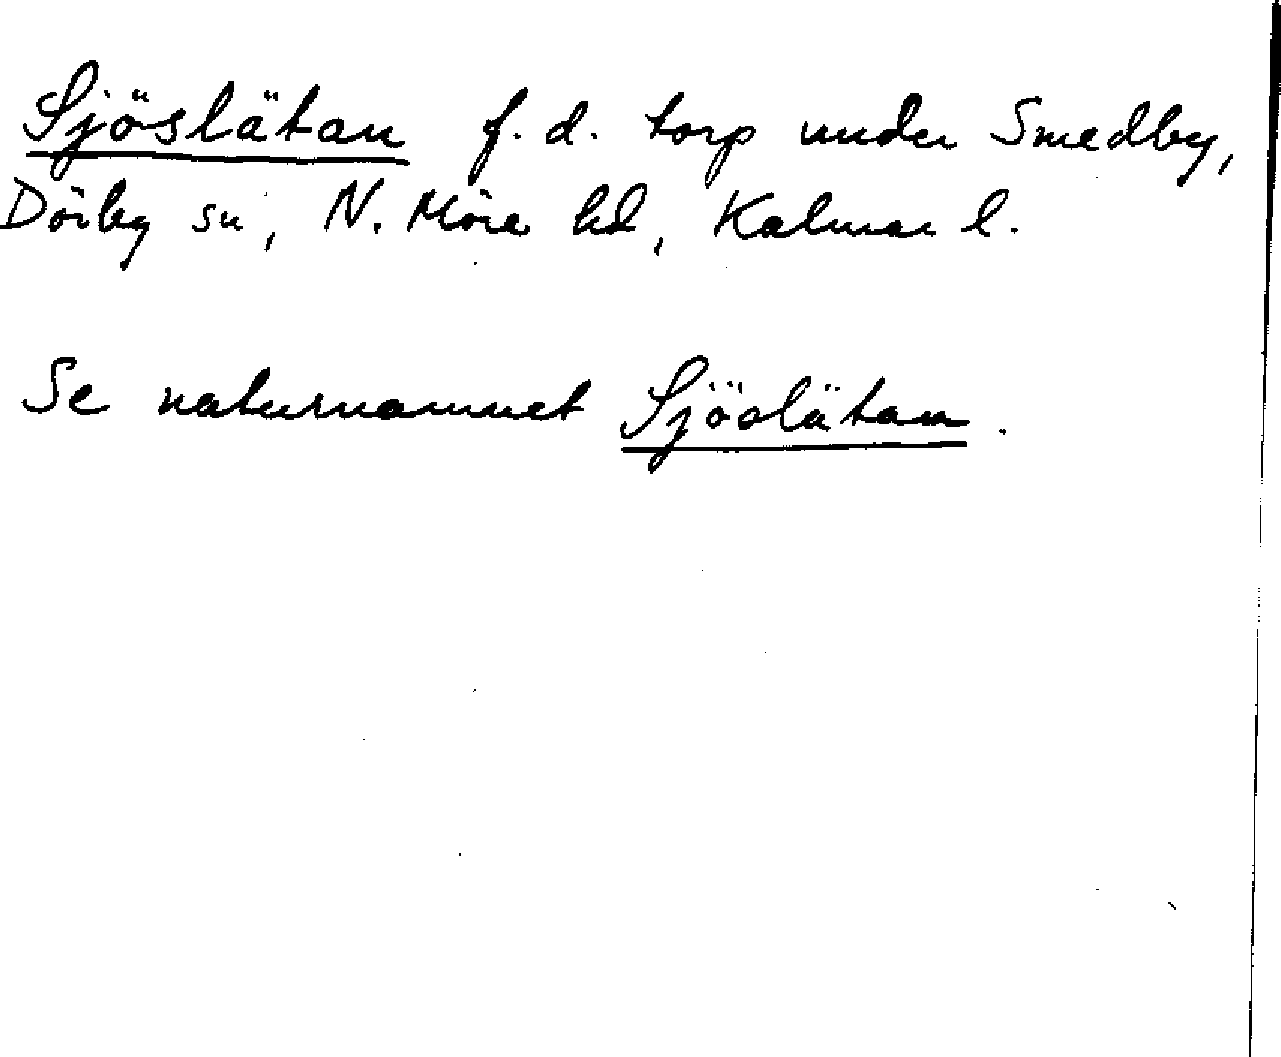 Sjöslätan f. d. torp under Smedby,
Dörby sn, N. Möre hd, Kalmar l.
Se naturnamnet Sjöslätan.